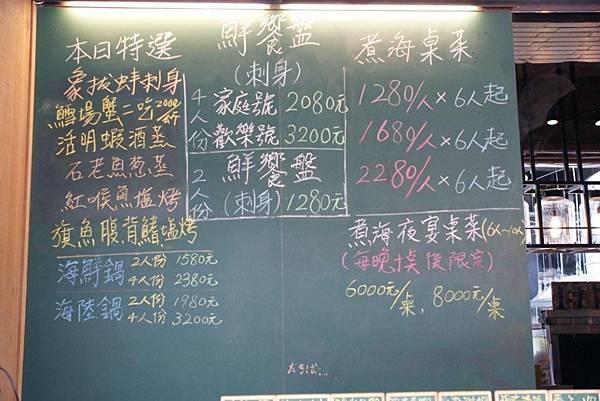 本日特選
象拔蚌刺身
鱈場蟹二吃2000/斤
活明蝦酒蒸
石老魚蔥蒸
紅喉魚塩烤
旗魚腹背鰭塩烤
海鮮鍋 2人份 1580元
4人份 2380元
海陸鍋 2人份 1980元
4人份 3200元
鮮饗盤
(刺身)
4人份 家庭號 2080元
歡樂號 3200元
2人份 鮮饗盤
(刺身) 1280元
煮海桌菜
1280/人×6人起
1680/人×6人起
2280/人×6人起
煮海夜宴桌菜
(每晚十桌後限定)
6000元/桌, 8000元/桌